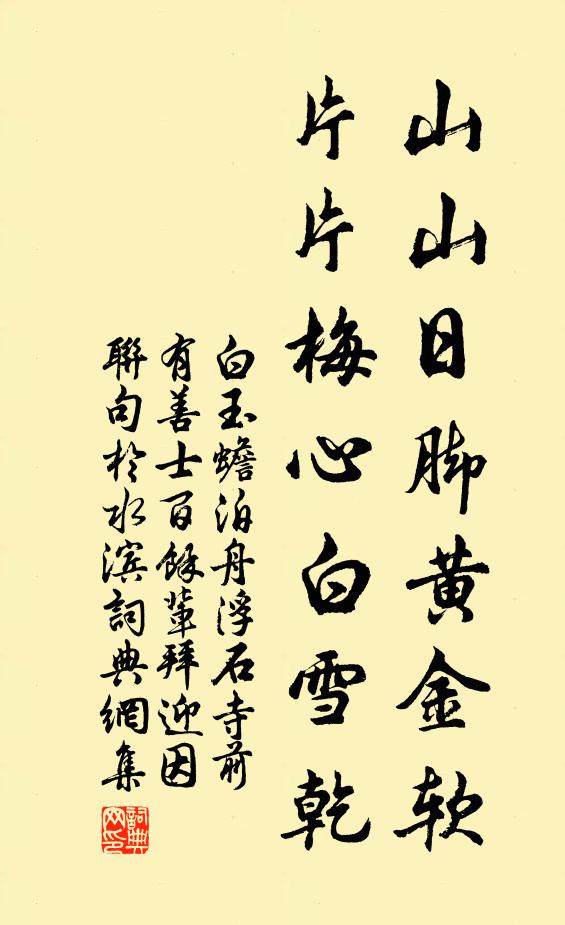 山山日脚黄金软
片片梅心白雪乾
白玉蟾泊舟浮石寺前
有善士百餘輩拜迎因
聯句於水滨詞典網集
詞典網印